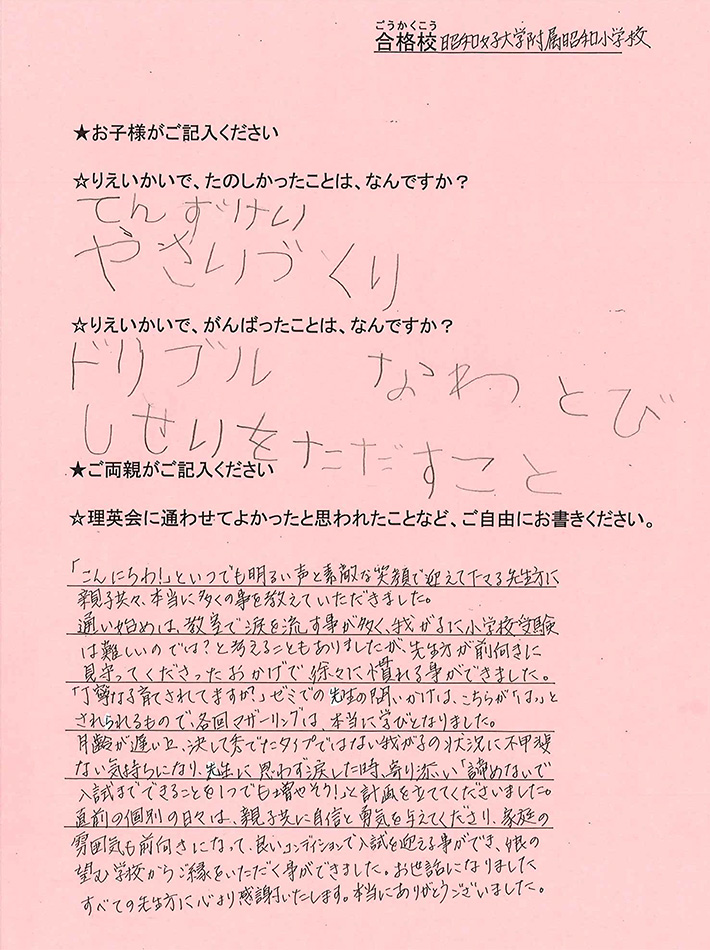 ごうかくこう
合格校 昭和女子大学附属昭和小学校
★お子様がご記入ください
☆りえいかいで、たのしかったことは、なんですか？
てんずけい
やさいづくり
☆りえいかいで、がんばったことは、なんですか？
ドリブル なわとび
しせいをただすこと
★ご両親がご記入ください
☆理英会に通わせてよかったと思われたことなど、ご自由にお書きください。
「こんにちわ！」といつでも明るい声と素敵な笑顔で迎えて下さる先生方に
親子共々、本当に多くの事を教えていただきました。
通い始めは、教室で涙を流す事が多く、我が子に小学校受験
は難しいのでは？と考えることもありましたが、先生方が前向きに
見守ってくださったおかげで徐々に慣れる事ができました。
「丁寧な子育てされてますか？」ゼミでの先生の問いかけは、こちらが「はっ」と
されられるもので、各回マザーリングは、本当に学びとなりました。
月齢が遅い上、決して秀でたタイプではない我が子の状況に不甲斐
ない気持ちになり、先生に思わず涙した時、寄り添い「諦めないで
入試までできることを1つでも増やそう！」と計画を立ててくださいました。
直前の個別の日々は、親子共に自信と勇気を与えてくださり、家庭の
雰囲気も前向きになって、良いコンディションで入試を迎える事ができ、娘の
望む学校からご縁をいただく事ができました。お世話になりました
すべての先生方に心より感謝いたします。本当にありがとうございました。